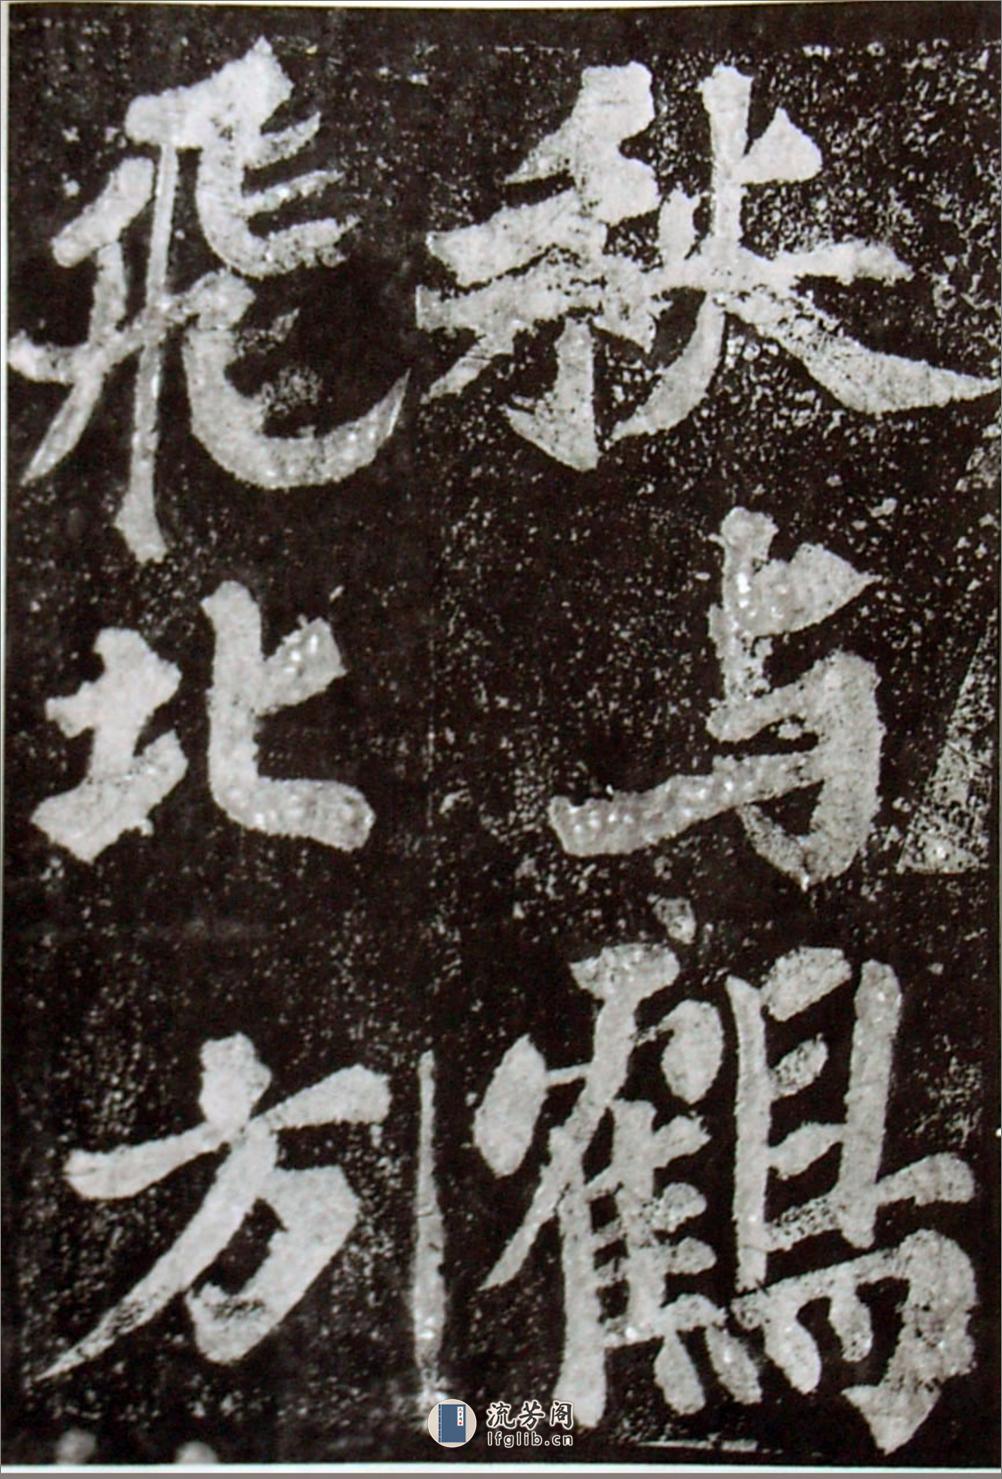 秋与鶴
飛北方
流芳阁
lfglib.cn